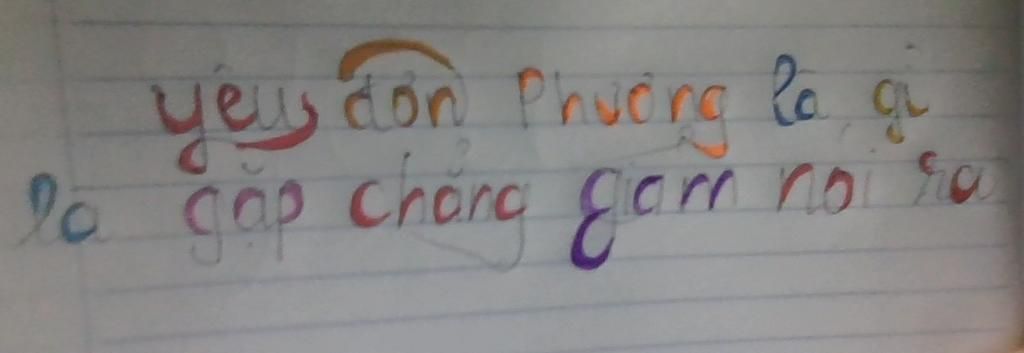 yêu đơn Phương là gì
là gặp chẳng giám nói ra